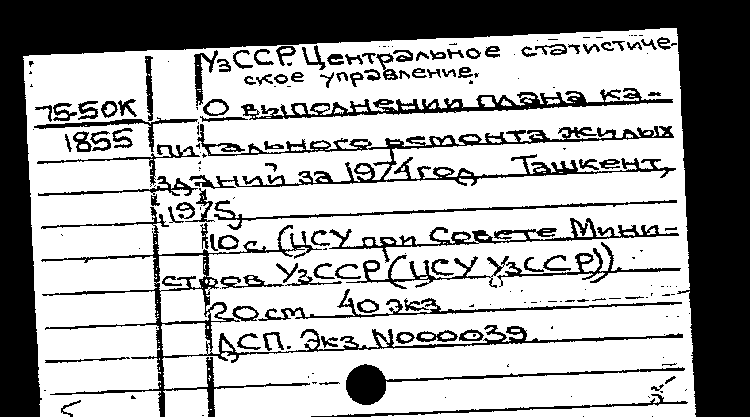 УзССР. Центральное статистиче-
ское управление.
75-50К О выполнении плана ка-
1855 питального ремонта жилых
зданий за 1974 год. Ташкент,
1975,
10 с. (ЦСУ при Совете Мини-
стров УзССР (ЦСУ УзССР)).
20 см. 40 экз.
ДСП. Экз. N000039.